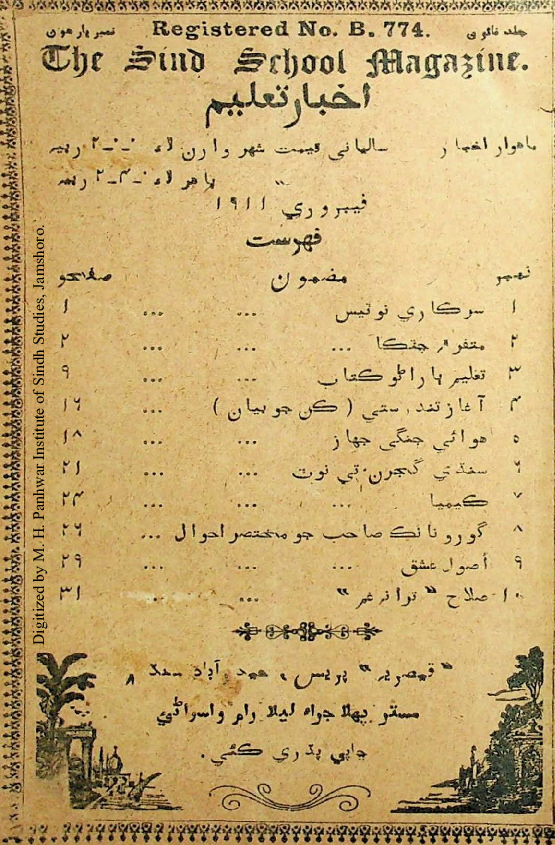 جلد نائون Registered No. B. 774. نمبر يارهون
The Sind School Magazine.
اخبار تعليم
ماهوار اخبار سالياني قيمت شهر وارن لاءِ ٠-٠-٢ رپيه
ٻاهر لاءِ ٠-٤-٢ رپيه
فيبروري ١٩١١
فهرست
نمبر مضمون صفحو
١ سرکاري نوٽيس ... ... ١
٢ متفرقہ چٽڪا ... ... ٢
٣ تعليم بابت اڻو ڪتاب ... ... ٩
٤ آغاز تندرستي ( ڪن جو بيان ) ... ١٦
٥ هوائي جنگي جهاز ... ... ١٨
٦ سنڌي گجرن تي نوٽ ... ... ٢١
٧ ڪيميا ... ... ... ٢٤
٨ گورو نانڪ صاحب جو مختصر احوال ... ٢٦
٩ اصول عشق ... ... ... ٢٩
١٠ صلاح ... ... ٣١
" قيصريه " پريس، حيدرآباد سنڌ ۾
مستر پهلاجراءِ ليلارام واسواڻي
ڇاپي پڌري ڪئي.
Digitized by M. H. Panhwar Institute of Sindh Studies, Jamshoro.